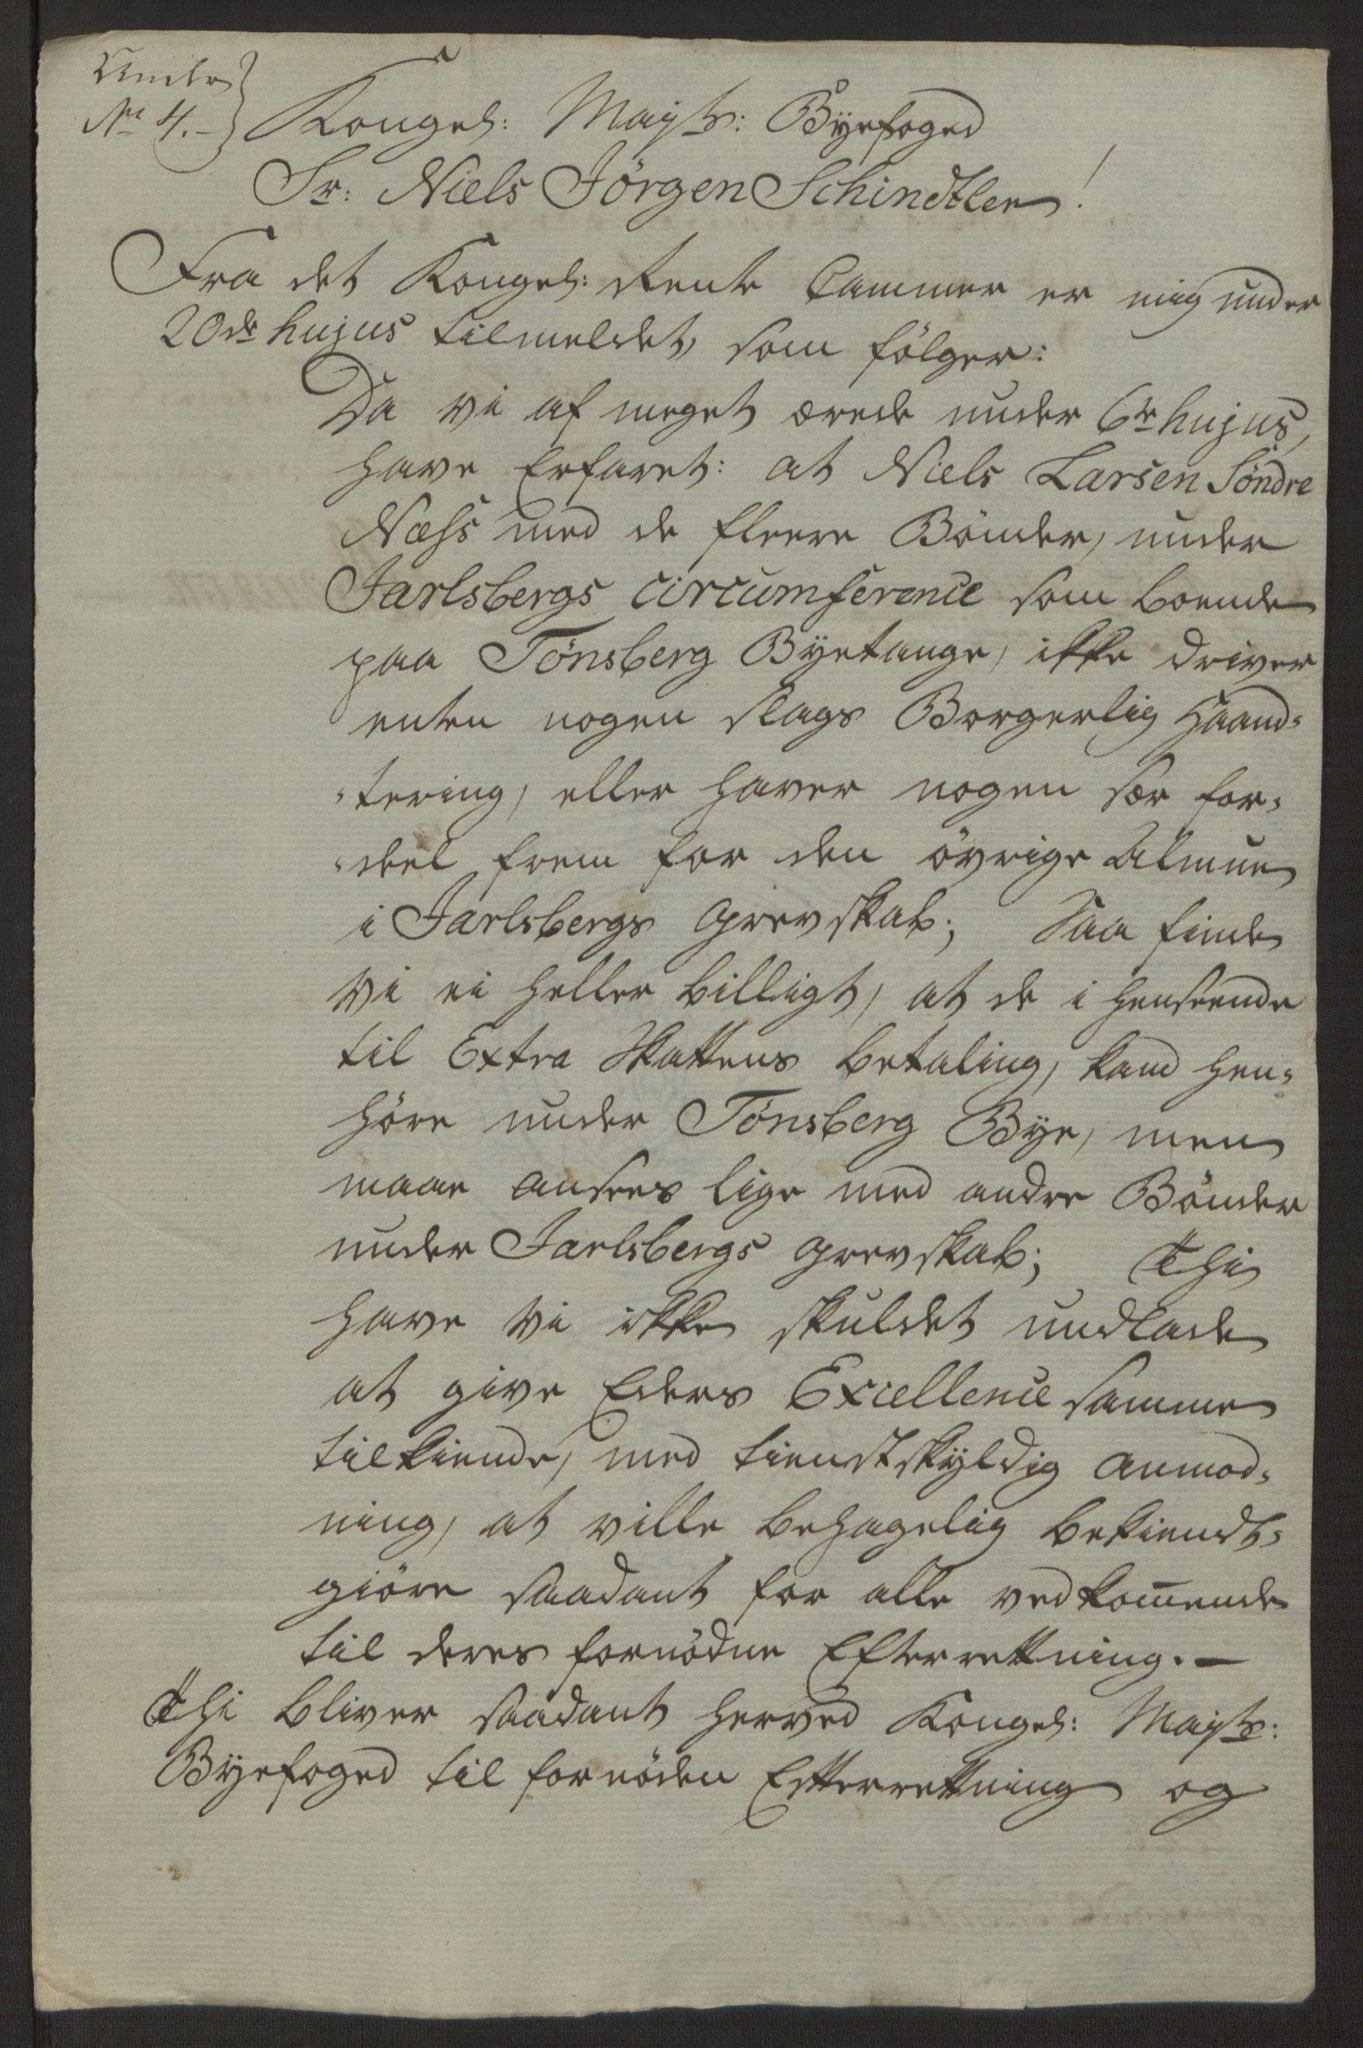 Under
No 4.-
Kongel: Mayts: Byefoged
Sr: Niels Jörgen Schindtler!
Fra det Kongel: Rente Cammer er mig under
20de hujus tilmeldet, som fölger:
Da vi af meget ærede under 6te hujus,
have Erfaret: at Niels Larsen Söndre
Næss med de fleere Bönder, under
Jarlsbergs circumference som boende
paa Tönsberg Byetange, ikke driver
enten nogen slags Borgerlig Haand-
-tering, eller haver nogen sær for-
-deel frem for den övrige Almue
i Jarlsbergs Grevskab; Saa finde
vi ei heller billigt, at de i henseende
til Extra Skattens betaling, kand hen-
höre under Tönsberg Bye, men
maae ansees lige med andre Bönder
under Jarlsbergs Grevskab; Thi
have vi ikke skuldet undlade
at give Eders Excellence samme
tilkiende, med tienstskyldig anmod-
ning, at ville behagelig bekiendt-
giöre saadant for alle vedkom̅ende
til deres fornödne Efterrettning.-
Thi bliver saadant herved Kongel: Mayts:
Byefoged til fornöden Efterrettning og